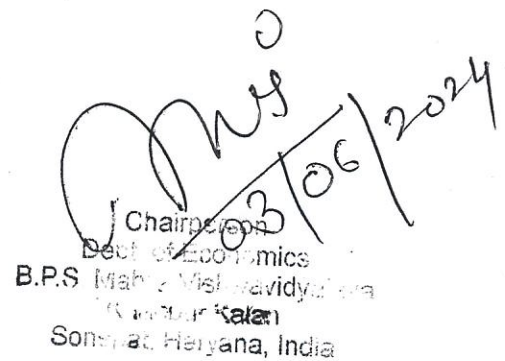 03/06/2024
Chairperson
Dept. of Economics
B.P.S Mahila Vishwavidyalaya
Khanpur Kalan
Sonepat, Haryana, India